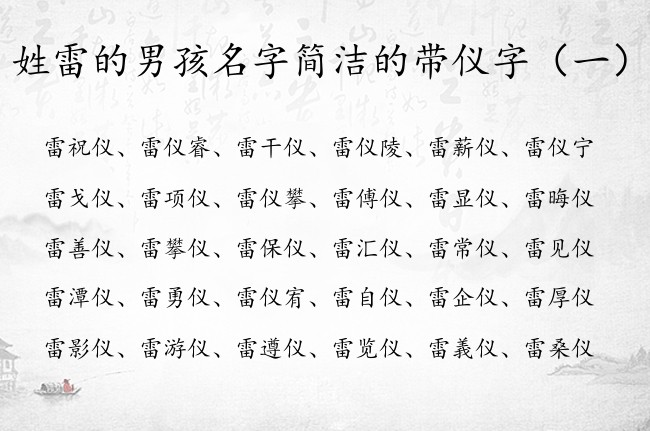 姓雷的男孩名字简洁的带仪字（一）
雷祝仪、雷仪睿、雷干仪、雷仪陵、雷薪仪、雷仪宁
雷戈仪、雷项仪、雷仪攀、雷傅仪、雷显仪、雷晦仪
雷善仪、雷攀仪、雷保仪、雷汇仪、雷常仪、雷见仪
雷潭仪、雷勇仪、雷仪宥、雷自仪、雷企仪、雷厚仪
雷影仪、雷游仪、雷遵仪、雷览仪、雷義仪、雷桑仪